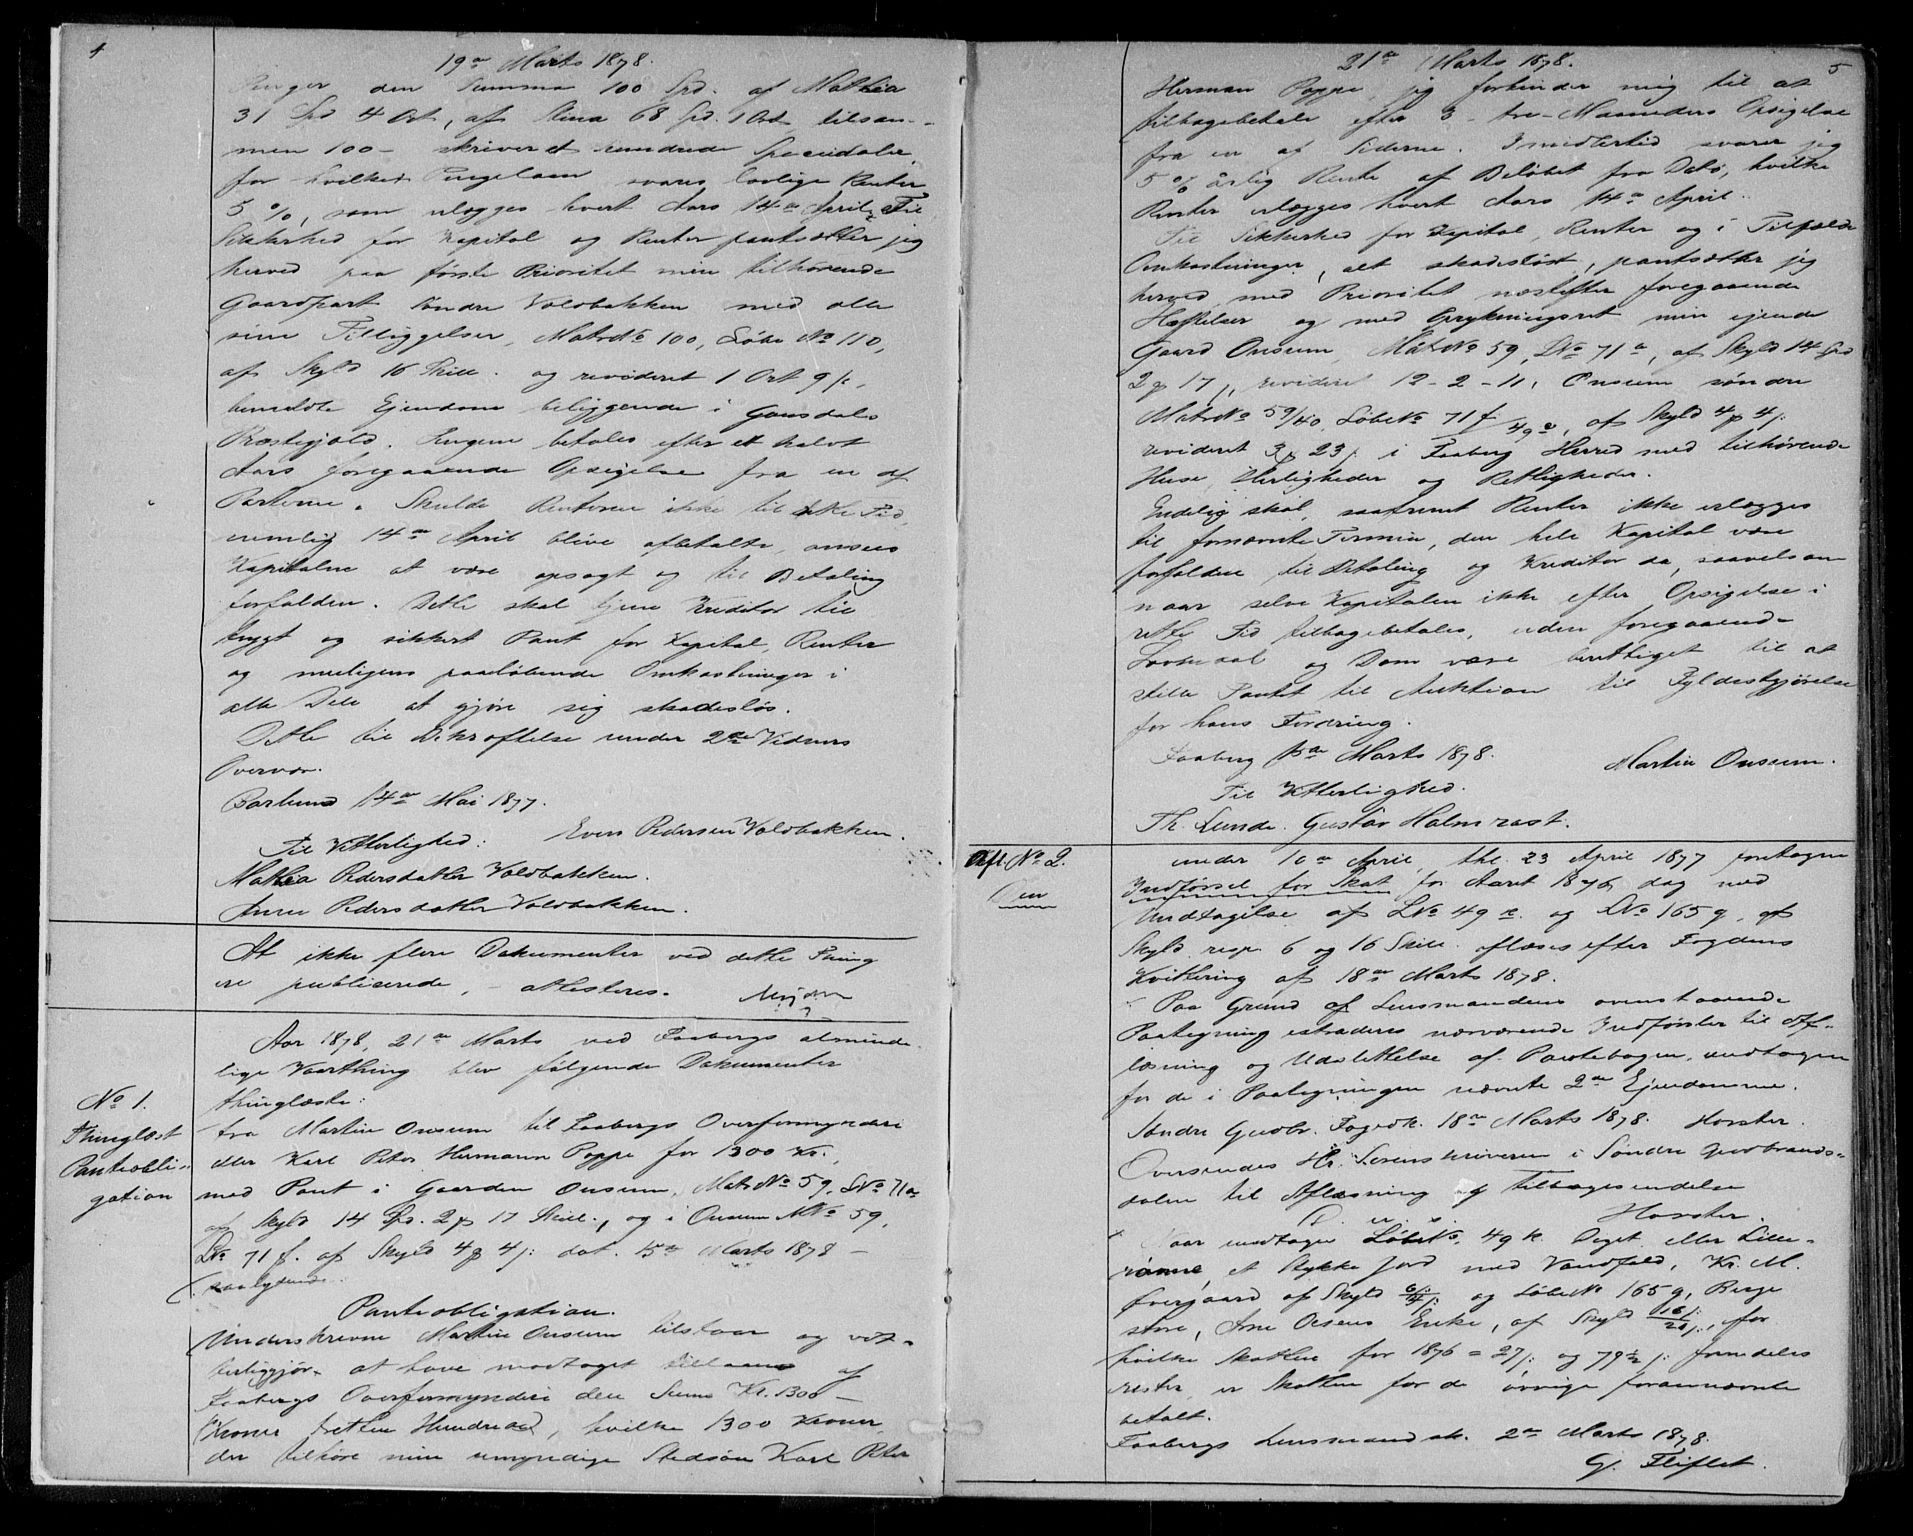 4
19de Marts 1878.
Penger den Summa 100 Spd. af Mathia
31 Spd 4 Ort, af Stina 68 Spd. 1 Ort, tilsam-
men 100 - skriver et hundrede Speciedaler,
for hvilket Pengelaan svares lovlige Renter
5 %, som erlægges hvert Aars 14de April. Til
Sikkerhed for Kapital og Renter pantsætter jeg
herved paa første Prioritet min tilhørende
Gaardpart søndre Voldbakken med alle
sine Tilliggelser, Matr No 100, Løbe No 110,
af Skyld 16 Skill. og revideret 1 Ort 9 s,
bemeldte Ejendom beliggende i Gausdals
Præstegjæld. Pengene betales efter et halvt
Aars foregaaende Opsigelse fra en af
Parterne. Skulde Renterne ikke til rette Tid,
nemlig 14de April blive afbetalte, ansees
Kapitalen at være opsagt og til Betaling
forfalden. Dette skal tjene Kreditor til
trygt og sikkert Pant for Kapital, Renter
og muligens paaløbende Omkostninger i
alle Dele at gjøre sig skadesløs.
Dette til Bekræftelse under 2de Vidners
Overvær.
Barlund 14de Mai 1877.
Even Pedersen Voldbakken.
Til Vitterlighed:
Mathea Pedersdatter Voldbakken.
Anne Pedersdatter Voldbakken.
At ikke flere Dokumenter ved dette Thing
ere publicerede, - attesteres.
Aar 1878, 21de Marts ved Faabergs alminde-
lige Vaarthing blev følgende Dokumenter
thinglæste:
No 1.
Thinglæst
Panteobli-
gation
fra Martin Onsum til Faabergs Overformynderi
eller Karl Peter Hermann Poppe for 1300 Kr.,
med Pant i Gaarden Onsum, Matr No 59, L No 71a
af Skyld 14 Spd. 2 p 17 Skill., og i Onsum M No 59,
L No 71 f. af Skyld 4 p 4 s: dat. 15de Marts 1878 -
saalydende:
Panteobligation.
Underskrevne Martin Onsum tilstaar og vit-
terliggjør at have modtaget tillaans af
Faabergs Overformynderi den Sum Kr. 1300 -
Kroner tretten Hundrede, hvilke 1300 Kroner
der tilhøre min umyndige Stedsøn Karl Peter
21de Marts 1878.
5
Herman Poppe, jeg forbinder mig til at
tilbagebetale efter 3 - tre - Maaneders Opsigelse
fra en af Siderne. Imidlertid svarer jeg
5 % årlig Rente af Beløbet fra Dato, hvilke
Renter erlægges hvert Aars 14de April.
Til Sikkerhed for Kapital, Renter og i Tilfælde
Omkostninger, alt skadesløst, pantsætter jeg
herved med Prioritet næstefter foregaaende
Hæftelser og med Oprykningsret min ejende
Gaard Onsum, Matr No 59, L No 71a, af Skyld 14 Spd
2 p 17 s, revideret 12 - 2 - 11, Onsum søndre
Matr No 59/40, Løbe No 71 f 49 e, af Skyld 4 p 4 s:
revideret 3 p 23 s. i Faaberg Herred med tilhørende
Huse, Herligheder og Rettigheder.
Endelig skal, saafremt Renter ikke erlægges
til fornævnte Termin, den hele Kapital være
forfalden til Betaling og Kreditor da, saavelsom
naar selve Kapitalen ikke efter Opsigelse i
rette Tid tilbagebetales, uden foregaaende
Lovmaal og Dom være berettiget til at
stille Pantet til Auktion til Fyldestgjørelse
for hans Fordring.
Faaberg 15de Marts 1878.
Martin Onsum.
Til Vitterlighed.
Th. Lunde. Gustav Holmrast.
Afl. No 2.
Den
under 10de April, thl. 23 April 1877 foretagne
Indførsel for Skat for Aaret 1876, dog med
Undtagelse af L No 49 e. og L No 165 g, af
Skyld resp. 6 og 16 Skill. aflæses efter Fogdens
Kvittering af 18de Marts 1878.
Paa Grund af Lensmandens ovenstaaende
Paategning extraderes nærværende Indførsler til Af-
læsning og Udslettelse af Pantebogen, undtagen
for de i Paategningen nævnte 2de Ejendomme.
Søndre Gudbr. Fogedk. 18de Marts 1878. Horster.
Oversendes Hr. Sorenskriveren i Søndre Gudbrands-
dalen til Aflæsning og Tilbagesendelse
Horster.
Naar undtages Løbe No 49 e. Doget eller Lille-
rønne, et Stykke Jord med Vandfald, Kr. M.
Overgaard af Skyld og Løbe No 165 g, Berge
store, Arne Olsens Enke, af Skyld 16 s:, for
hvilke Skatten for 1876 = 27 s: og 79 1/2 s: fremdeles
rester, er Skatten for de øvrige forannævnte
betalt.
Faabergs Lensmandsk. 2de Marts 1878.
G. Fliflet.